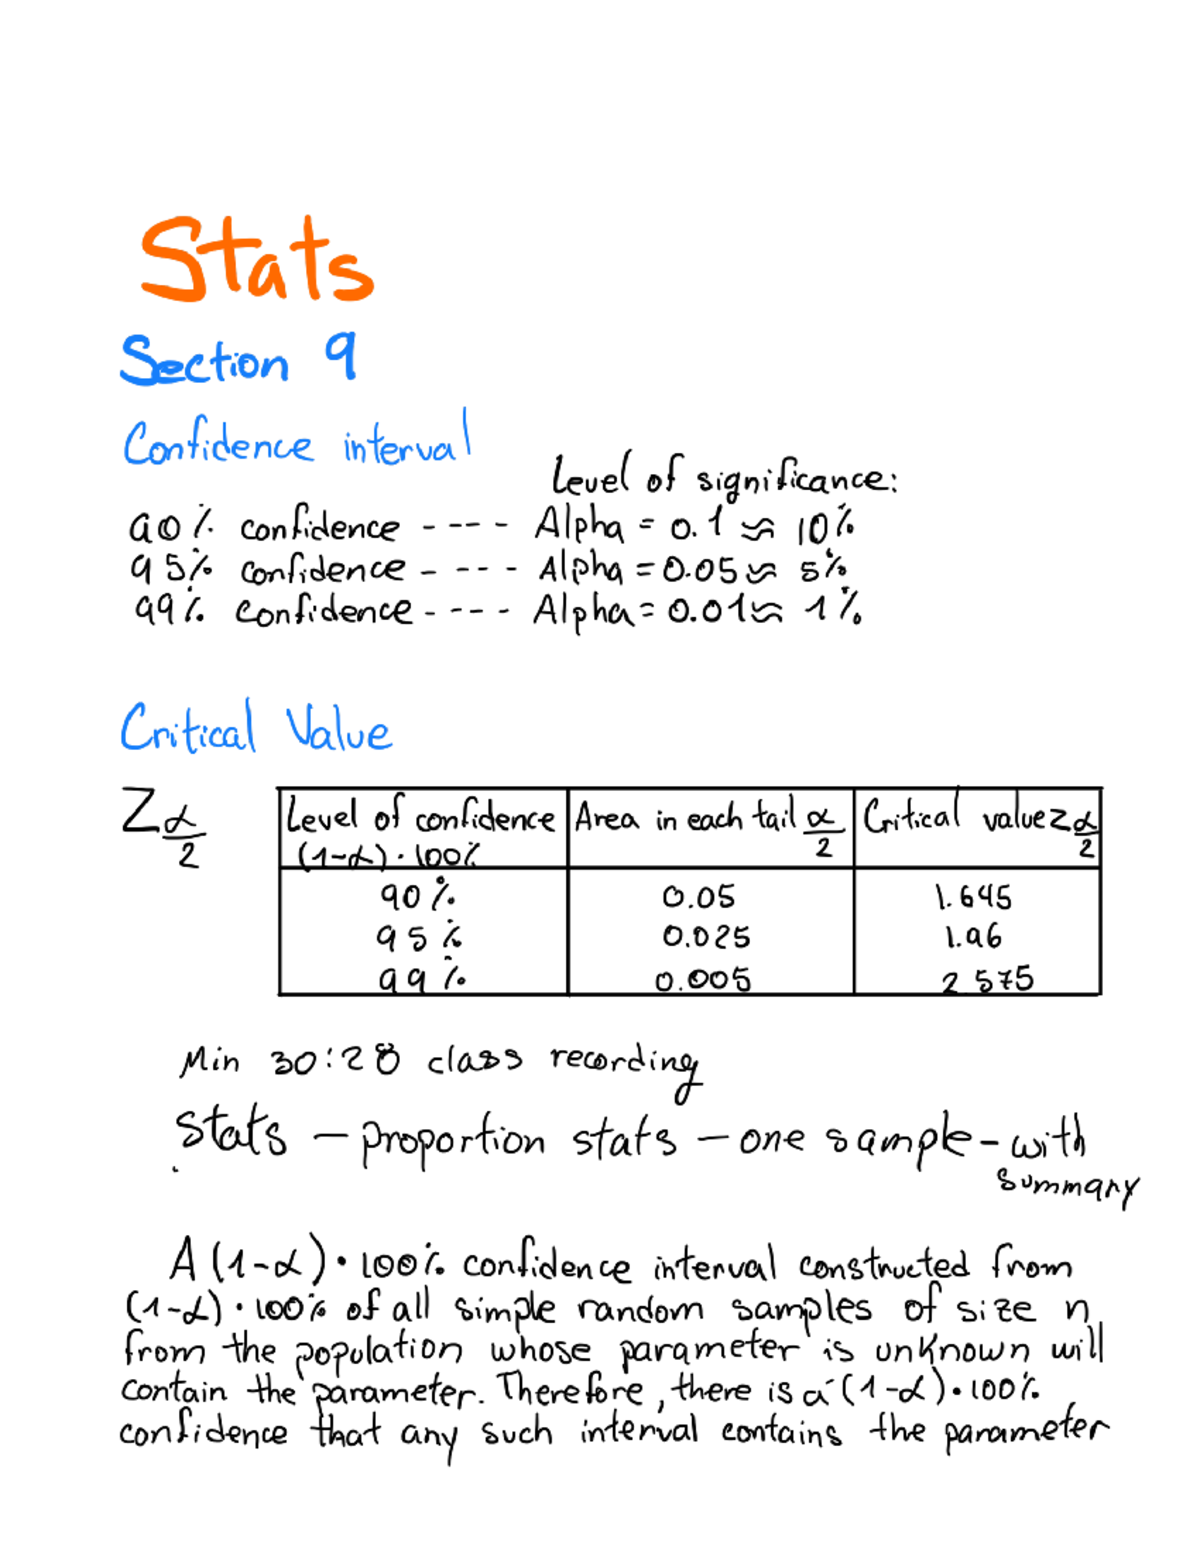 Stats
Section 9
Confidence interval
Level of significance:
90% confidence ---- Alpha = 0.1 ≈ 10%
95% confidence ---- Alpha = 0.05 ≈ 5%
99% confidence ---- Alpha = 0.01 ≈ 1%
Critical Value
Z α/2
Level of confidence (1-α)·100% | Area in each tail α/2 | Critical value z α/2
90% | 0.05 | 1.645
95% | 0.025 | 1.96
99% | 0.005 | 2.575
Min 30:28 class recording
Stats – proportion stats – one sample – with
summary
A (1-α)·100% confidence interval constructed from
(1-α)·100% of all simple random samples of size n
from the population whose parameter is unknown will
contain the parameter. Therefore, there is a (1-α)·100%
confidence that any such interval contains the parameter